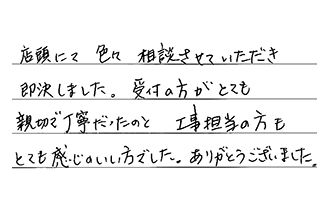 店頭にて 色々 相談させていただき
即決しました。受付の方がとても
親切で丁寧だったのと 工事担当の方も
とても感じのいい方でした。ありがとうございました。